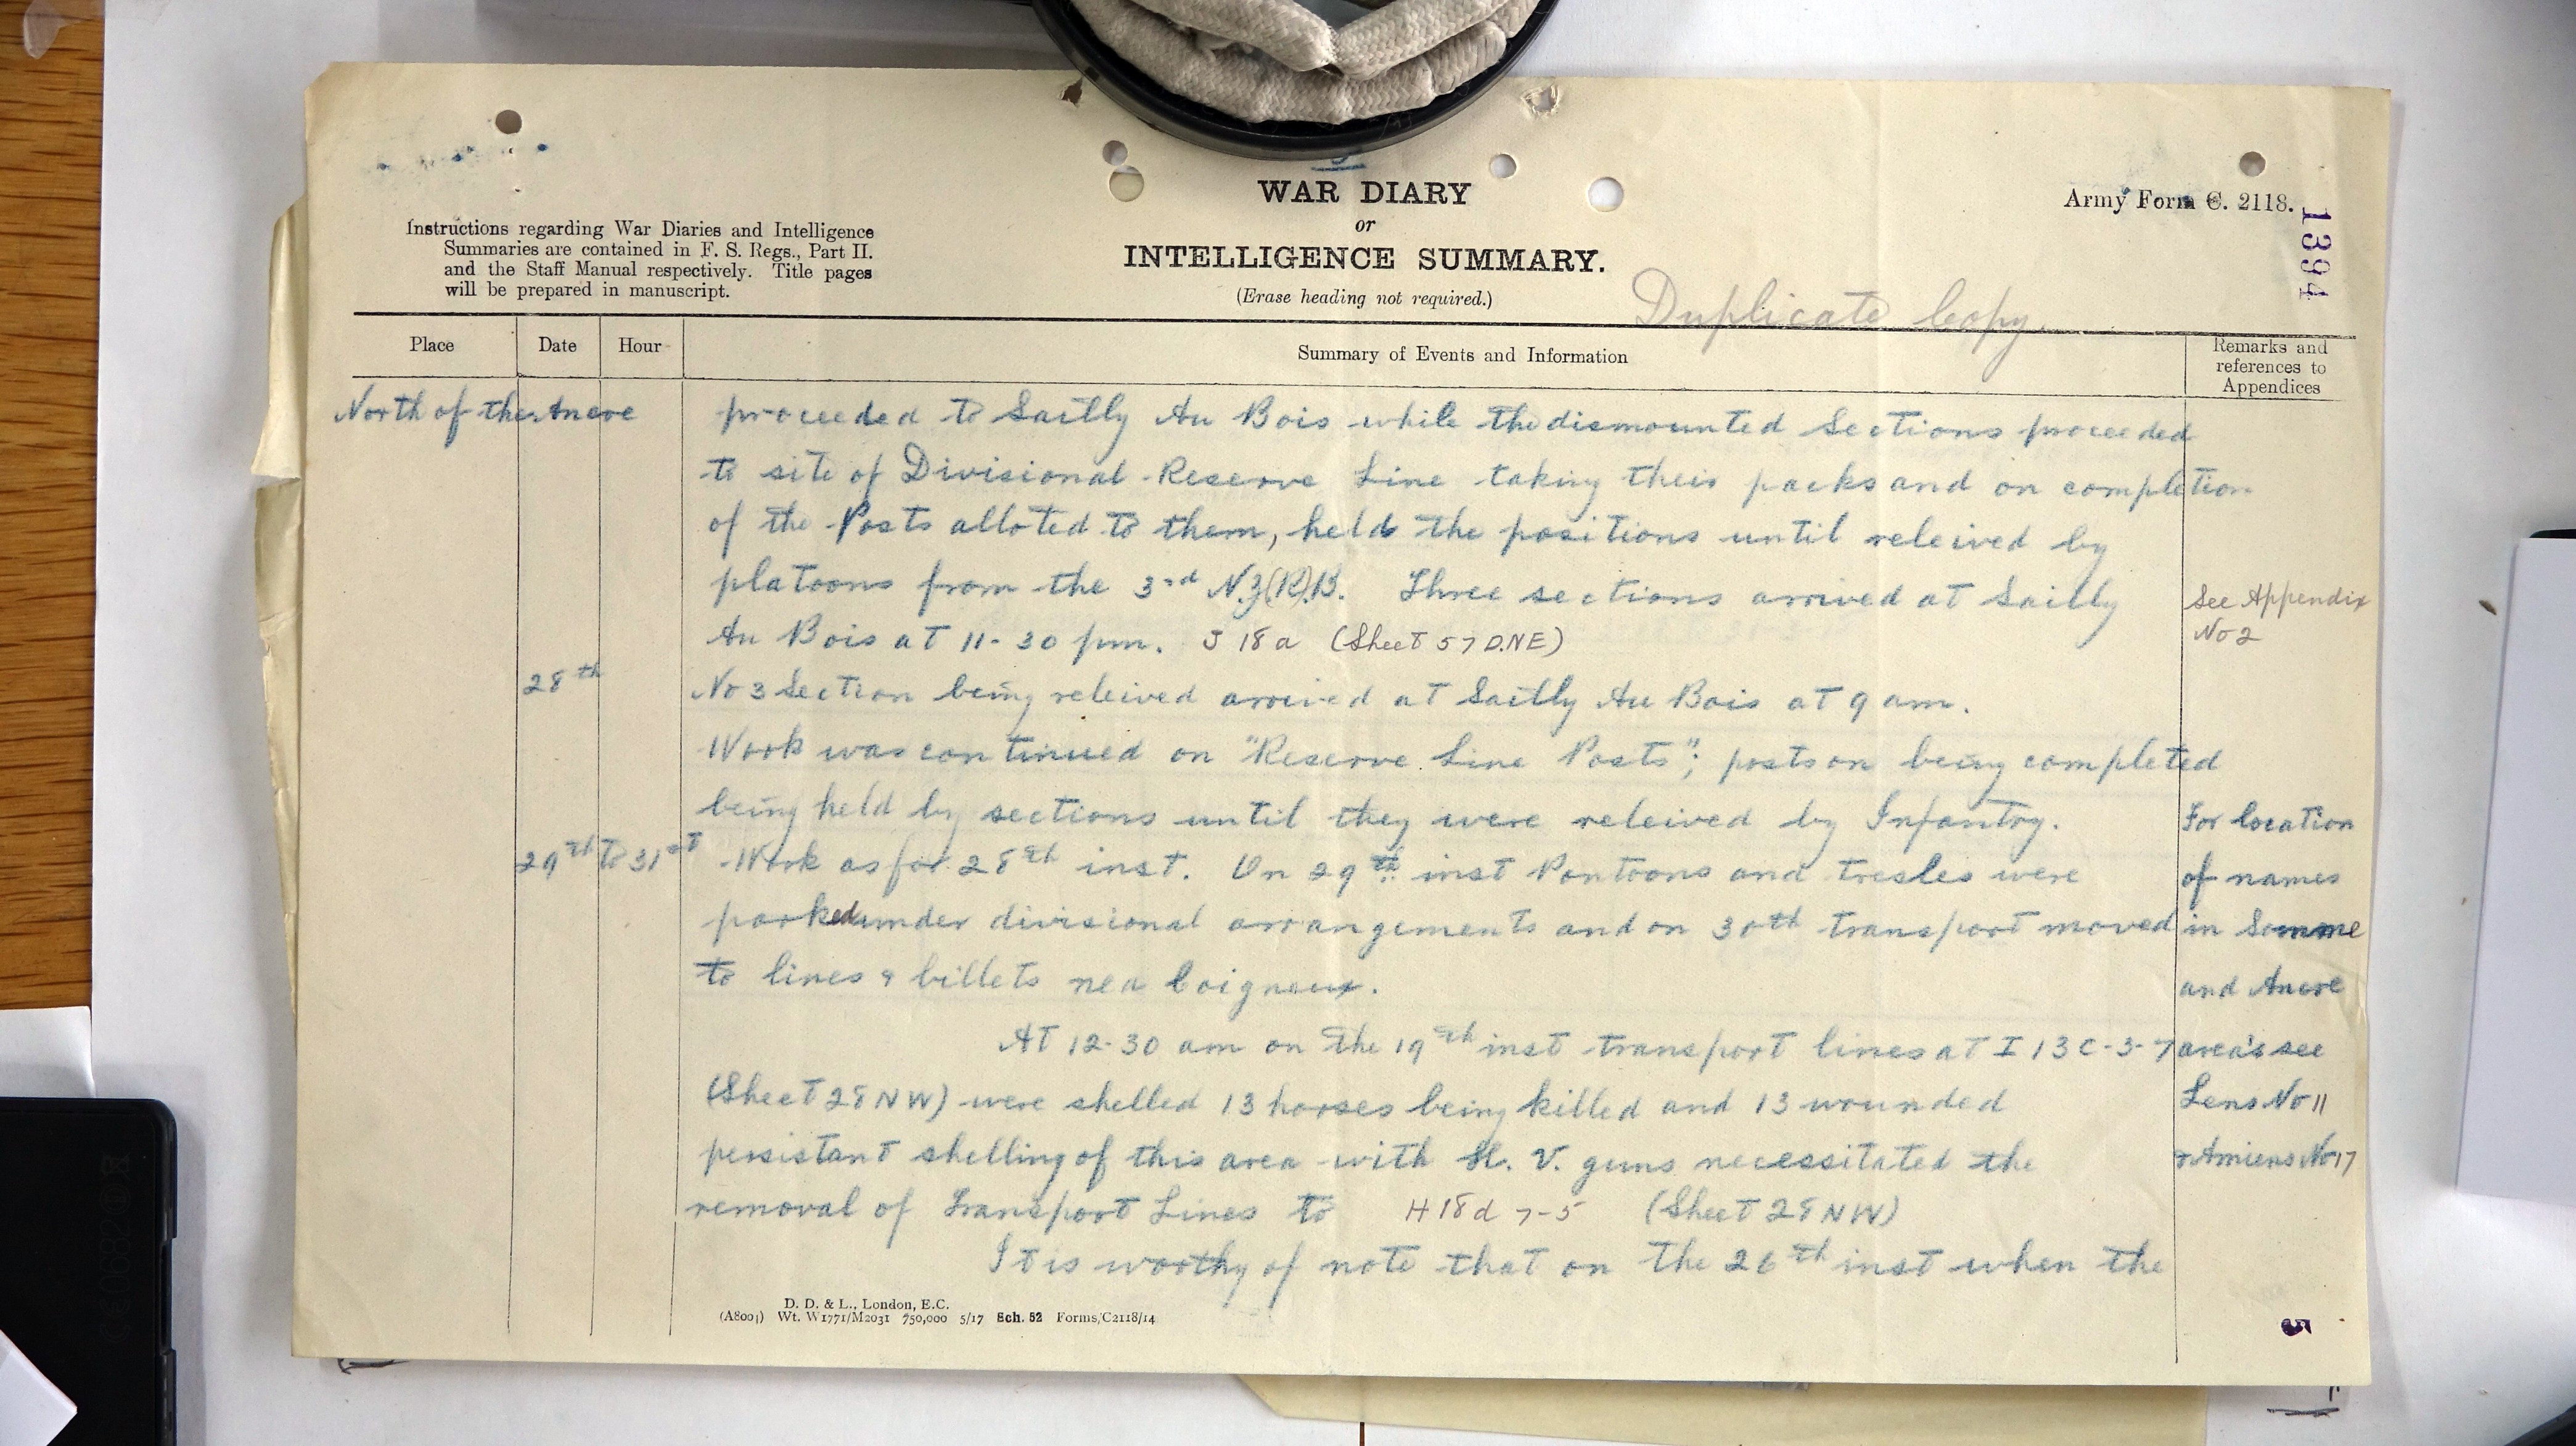 WAR DIARY
or
INTELLIGENCE SUMMARY.
(Erase heading not required.)
Army Form C. 2118.
1394
Instructions regarding War Diaries and Intelligence
Summaries are contained in F. S. Regs., Part II.
and the Staff Manual respectively. Title pages
will be prepared in manuscript.
Duplicate Copy.
Place Date Hour Summary of Events and Information Remarks and
references to
Appendices
North of the Ancre proceeded to Sailly Au Bois while the dismounted Sections proceeded
to site of Divisional Reserve Line taking their packs and on completion
of the Posts alloted to them, held the positions until releived by
platoons from the 3rd N.Z.(R).B. Three sections arrived at Sailly
See Appendix
No 2
Au Bois at 11-30 pm. J 18 a (Sheet 57 D.NE)
28th No 3 Section being releived arrived at Sailly Au Bois at 9 am.
Work was continued on "Reserve Line Posts"; posts on being completed
being held by sections until they were releived by Infantry.
29th to 31st Work as for 28th inst. On 29th inst Pontoons and tresles were
parked under divisional arrangements and on 30th transport moved
to lines & billets nea Coigneux.
At 12-30 am on the 19th inst transport lines at I 13 C-3-7
(Sheet 28 NW) were shelled 13 horses being killed and 13 wounded
persistant shelling of this area with H. V. guns necessitated the
removal of Transport Lines to H 18 d 7-5 (Sheet 28 NW)
It is worthy of note that on the 26th inst when the
For location
of names
in Somme
and Ancre
area's see
Lens No 11
& Amiens No 17
D. D. & L., London, E.C.
(A8001) Wt. W1771/M2031 750,000 5/17 Sch. 52 Forms/C2118/14
5